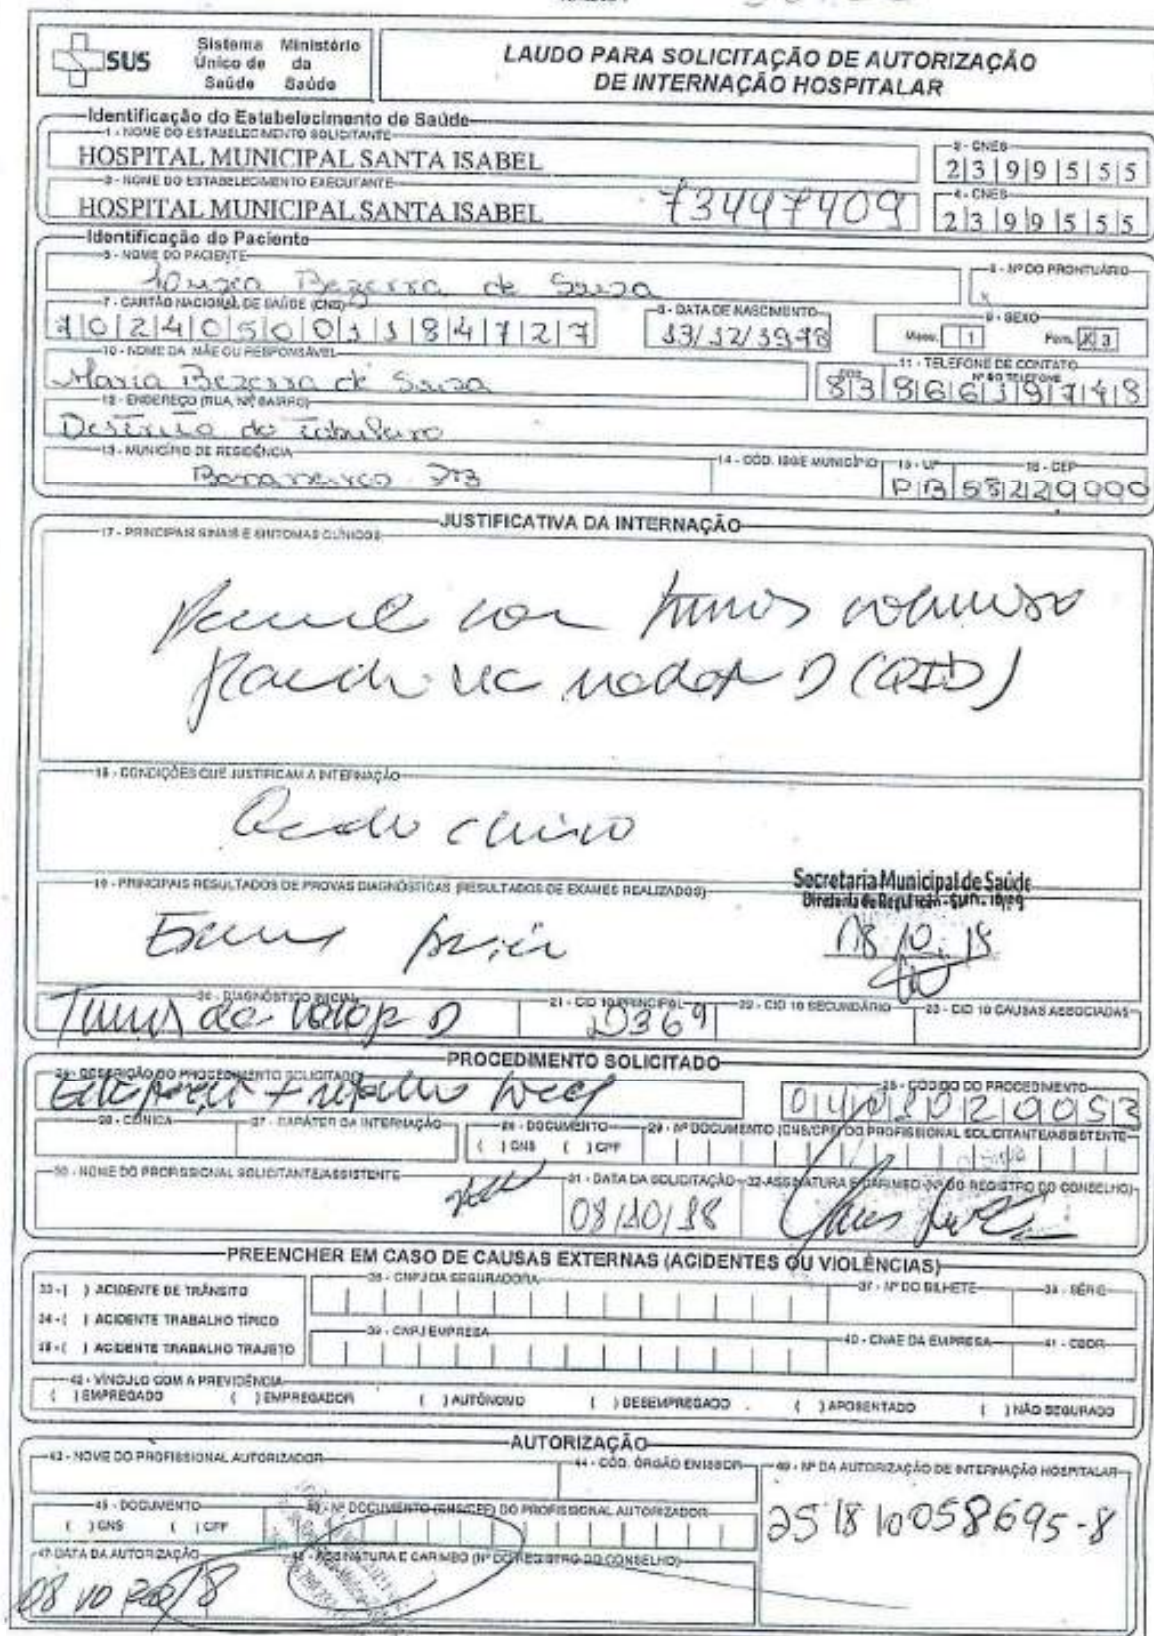 SUS
Sistema Único de Saúde
Ministério da Saúde
LAUDO PARA SOLICITAÇÃO DE AUTORIZAÇÃO
DE INTERNAÇÃO HOSPITALAR
Identificação do Estabelecimento de Saúde
1 - NOME DO ESTABELECIMENTO SOLICITANTE
HOSPITAL MUNICIPAL SANTA ISABEL
2 - CNES
2399555
3 - NOME DO ESTABELECIMENTO EXECUTANTE
HOSPITAL MUNICIPAL SANTA ISABEL
73447409
4 - CNES
2399555
Identificação do Paciente
5 - NOME DO PACIENTE
Bezerra de Souza
6 - Nº DO PRONTUÁRIO
7 - CARTÃO NACIONAL DE SAÚDE (CNS)
702405001184727
8 - DATA DE NASCIMENTO
13/12/1978
9 - SEXO
Masc. 1
Fem. X 3
10 - NOME DA MÃE OU RESPONSÁVEL
Maria Bezerra de Souza
11 - TELEFONE DE CONTATO
DDD
Nº DO TELEFONE
12 - ENDEREÇO (RUA, Nº, BAIRRO)
Distrito de Tabuleiro
13 - MUNICÍPIO DE RESIDÊNCIA
Bananeiras PB
14 - CÓD. IBGE MUNICÍPIO
15 - UF
PB
16 - CEP
58220000
JUSTIFICATIVA DA INTERNAÇÃO
17 - PRINCIPAIS SINAIS E SINTOMAS CLÍNICOS
com tumor
D (QID)
18 - CONDIÇÕES QUE JUSTIFICAM A INTERNAÇÃO
Quadro clínico
19 - PRINCIPAIS RESULTADOS DE PROVAS DIAGNÓSTICAS (RESULTADOS DE EXAMES REALIZADOS)
Secretaria Municipal de Saúde
Exame físico
08.10.18
20 - DIAGNÓSTICO INICIAL
Tumor de D
21 - CID 10 PRINCIPAL
D369
22 - CID 10 SECUNDÁRIO
23 - CID 10 CAUSAS ASSOCIADAS
PROCEDIMENTO SOLICITADO
24 - DESCRIÇÃO DO PROCEDIMENTO SOLICITADO
25 - CÓDIGO DO PROCEDIMENTO
26 - CLÍNICA
27 - CARÁTER DA INTERNAÇÃO
28 - DOCUMENTO
( ) CNS ( ) CPF
29 - Nº DOCUMENTO (CNS/CPF) DO PROFISSIONAL SOLICITANTE/ASSISTENTE
30 - NOME DO PROFISSIONAL SOLICITANTE/ASSISTENTE
31 - DATA DA SOLICITAÇÃO
08/10/18
32 - ASSINATURA E CARIMBO (Nº DO REGISTRO DO CONSELHO)
PREENCHER EM CASO DE CAUSAS EXTERNAS (ACIDENTES OU VIOLÊNCIAS)
33 - ( ) ACIDENTE DE TRÂNSITO
34 - ( ) ACIDENTE TRABALHO TÍPICO
35 - ( ) ACIDENTE TRABALHO TRAJETO
36 - CNPJ DA SEGURADORA
37 - Nº DO BILHETE
38 - SÉRIE
39 - CNPJ EMPRESA
40 - CNAE DA EMPRESA
41 - CBOR
42 - VÍNCULO COM A PREVIDÊNCIA
( ) EMPREGADO ( ) EMPREGADOR ( ) AUTÔNOMO ( ) DESEMPREGADO ( ) APOSENTADO ( ) NÃO SEGURADO
AUTORIZAÇÃO
43 - NOME DO PROFISSIONAL AUTORIZADOR
44 - CÓD. ÓRGÃO EMISSOR
49 - Nº DA AUTORIZAÇÃO DE INTERNAÇÃO HOSPITALAR
251810058695-8
45 - DOCUMENTO
( ) CNS ( ) CPF
46 - Nº DOCUMENTO (CNS/CPF) DO PROFISSIONAL AUTORIZADOR
47 - DATA DA AUTORIZAÇÃO
48 - ASSINATURA E CARIMBO (Nº DO REGISTRO DO CONSELHO)